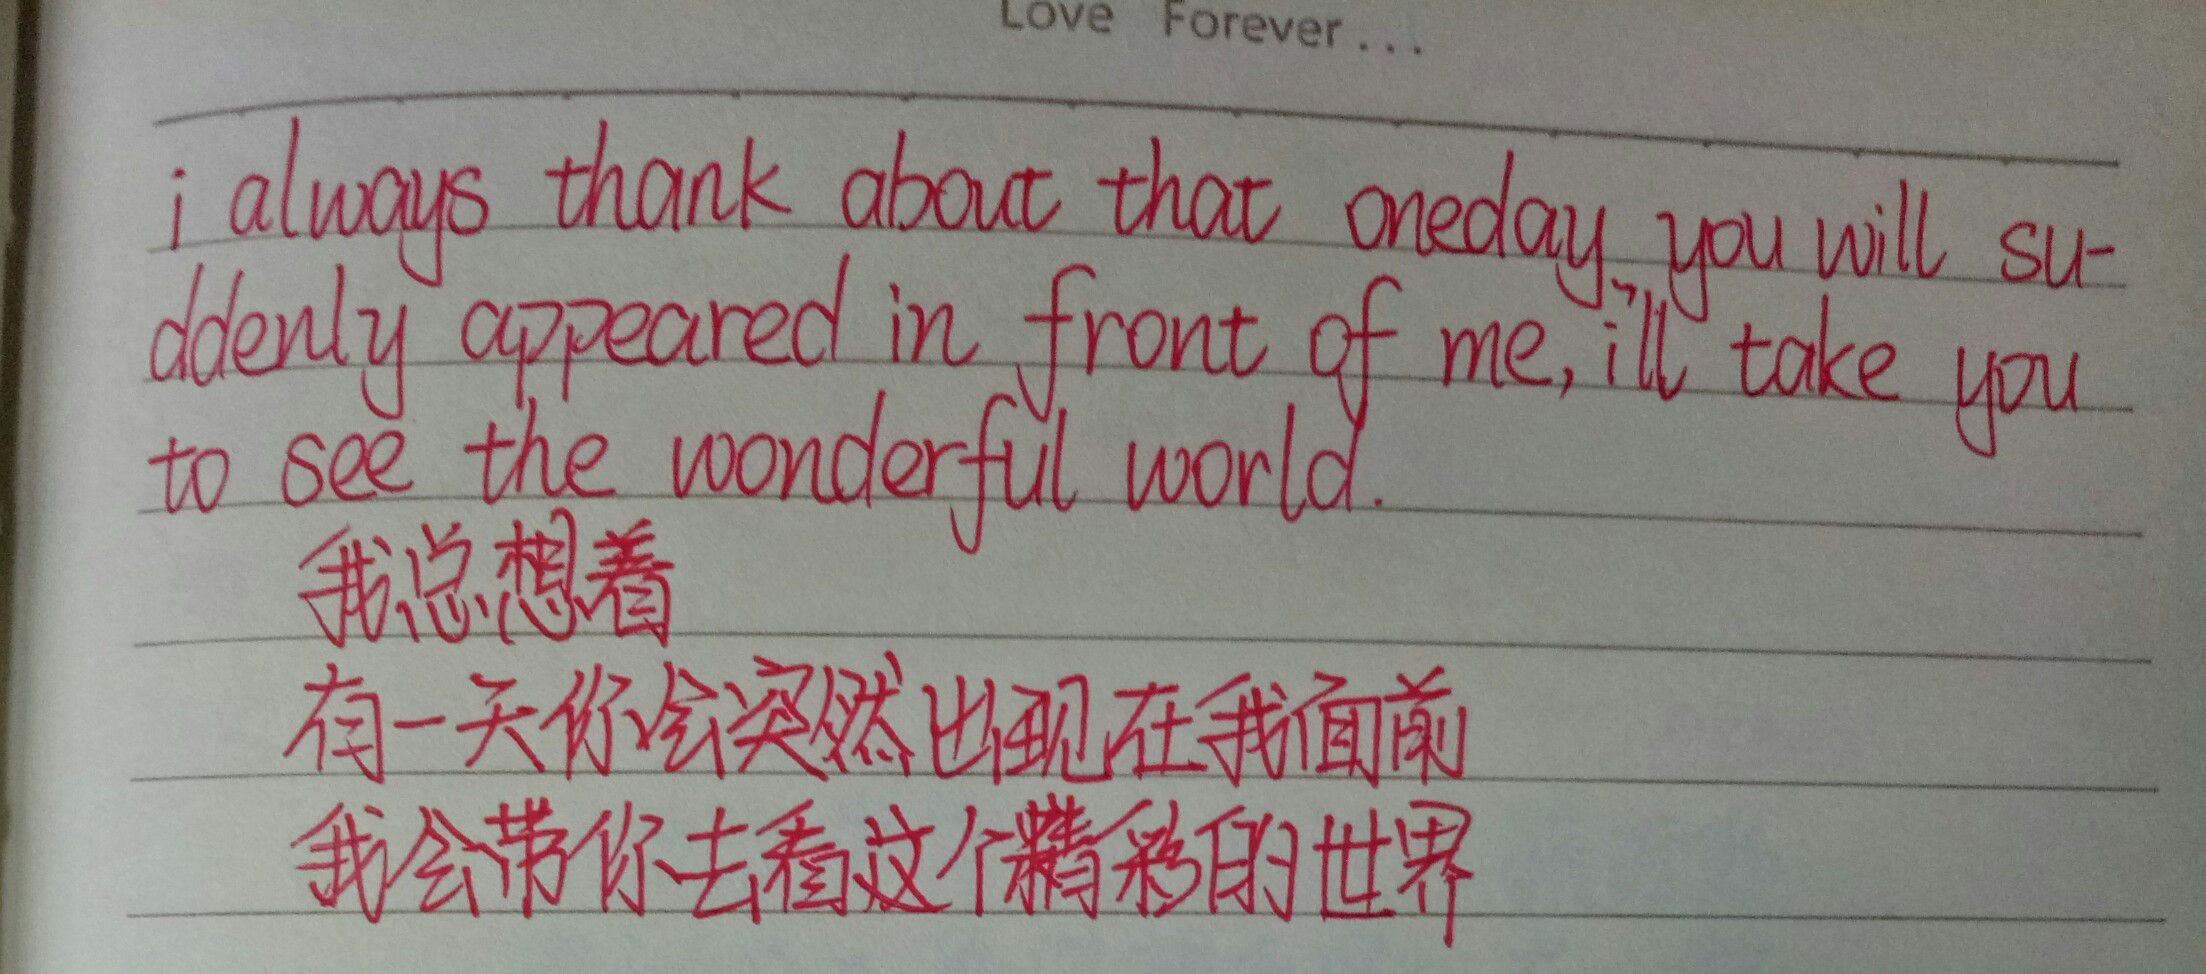 Love Forever...
i always thank about that oneday, you will su-
ddenly appeared in front of me, i'll take you
to see the wonderful world.
我总想着
有一天你会突然出现在我面前
我会带你去看这个精彩的世界